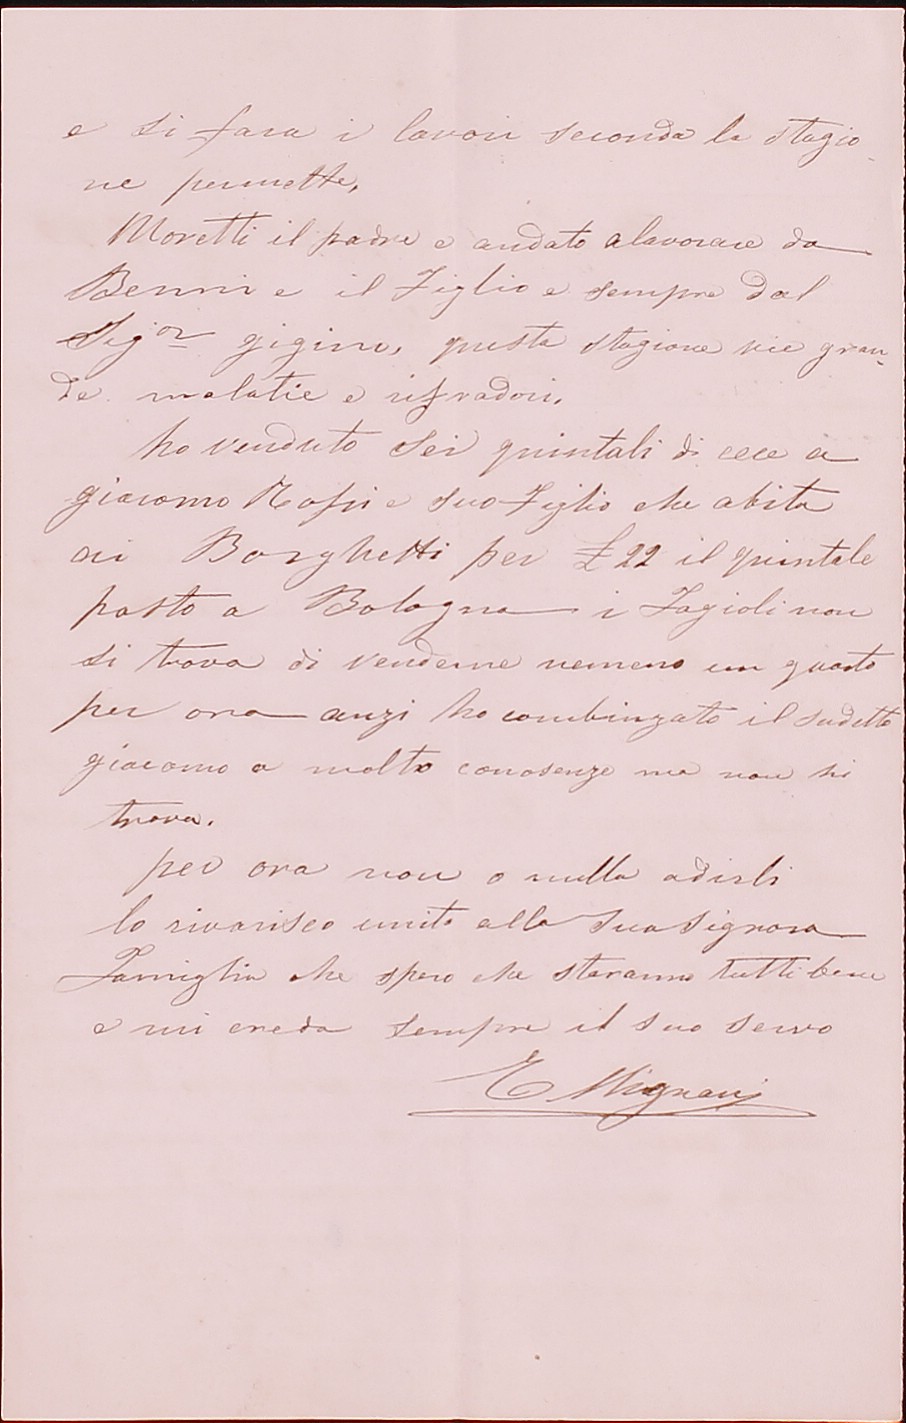 e si fara i lavori seconda la stagio-
ne permette,
Moretti il padre e andato a lavorare da
Bennie il Figlio e sempre dal
Sigor gigino, questa stagione vie gran-
de malatie e rifradori.
ho venduto Sei quintali di cece a
giacomo Rossi e suo Figlio che abita
ai Borghetti per £ 22 il quintale
posto a Bologna i Fagioli non
si trova di venderne nemeno un quarto
per ora anzi ho combinzato il sudetto
giacomo a molto conosenze ma non si
trova.
per ora non o nulla adirli
lo riverisco unito alla sua Signora
Famiglia che spero che staranno tutti bene
e mi creda sempre il suo servo
E Mignani